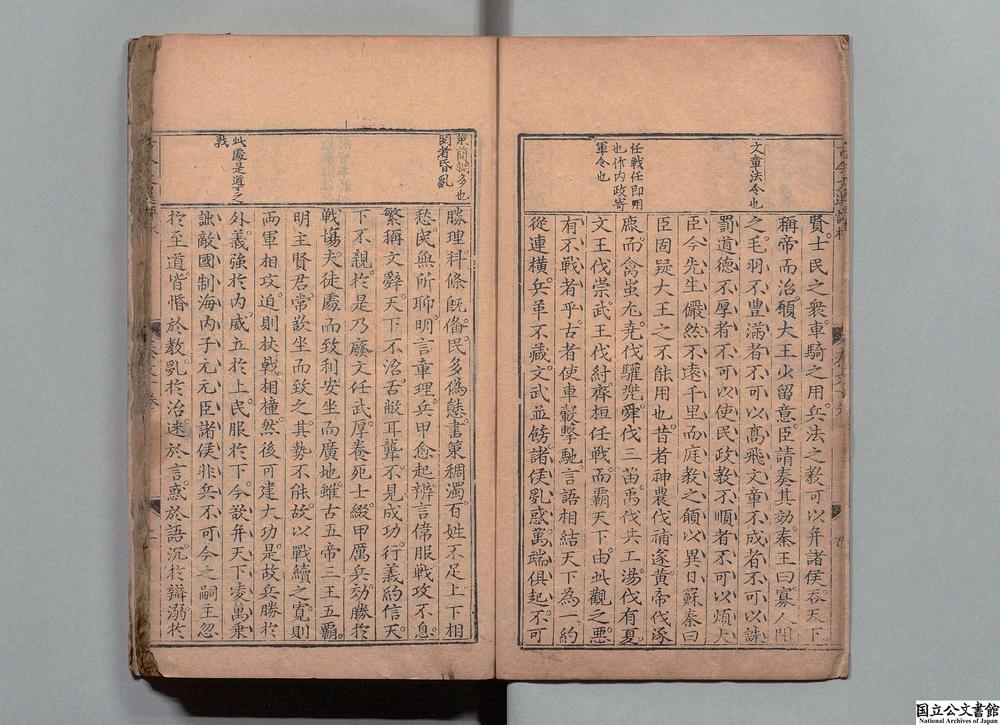 文章法令也
任戰任即用
也作内政寄
軍令也
賢士民之衆車騎之用兵法之教可以并諸侯吞天下
稱帝而治願大王少留意臣請奏其効秦王曰寡人聞
之毛羽不豊滿者不可以髙飛文章不成者不可以誅
罰道德不厚者不可以使民政教不順者不可以煩大
臣今先生儼然不遠千里而庭教之願以異日蘇秦曰
臣固疑大王之不能用也昔者神農伐補遂黄帝伐涿
鹿而禽蚩尤尭伐驩兜舜伐三苗禹伐共工湯伐有夏
文王伐崇武王伐紂齊桓任戰而霸天下由此觀之惡
有不戰者乎古者使車轂擊馳言語相結天下為一約
從連横兵革不藏文武並餝諸侯亂惑萬端俱起不可
策簡稠多也
罔者昏亂
此處是導之
戰
勝理科條既俻民多偽態書策稠濁百姓不足上下相
愁民無所聊明言章理兵甲愈起辨言偉服戰攻不息
繁稱文辭天下不治舌敝耳聾不見成功行義約信天
下不親於是乃廢文任武厚養死士綴甲厲兵効勝於
戰塲夫徒處而致利安坐而廣地雖古五帝三王五霸
明主賢君常欲坐而致之其勢不能故以戰續之寛則
兩軍相攻迫則杖戟相橦然後可建大功是故兵勝於
外義強於内威立於上民服於下今欲并天下凌萬乗
詘敵國制海内子元元臣諸侯非兵不可今之嗣主忽
於至道皆惛於教亂於治迷於言惑於語沉於辯溺於
国立公文書館
National Archives of Japan